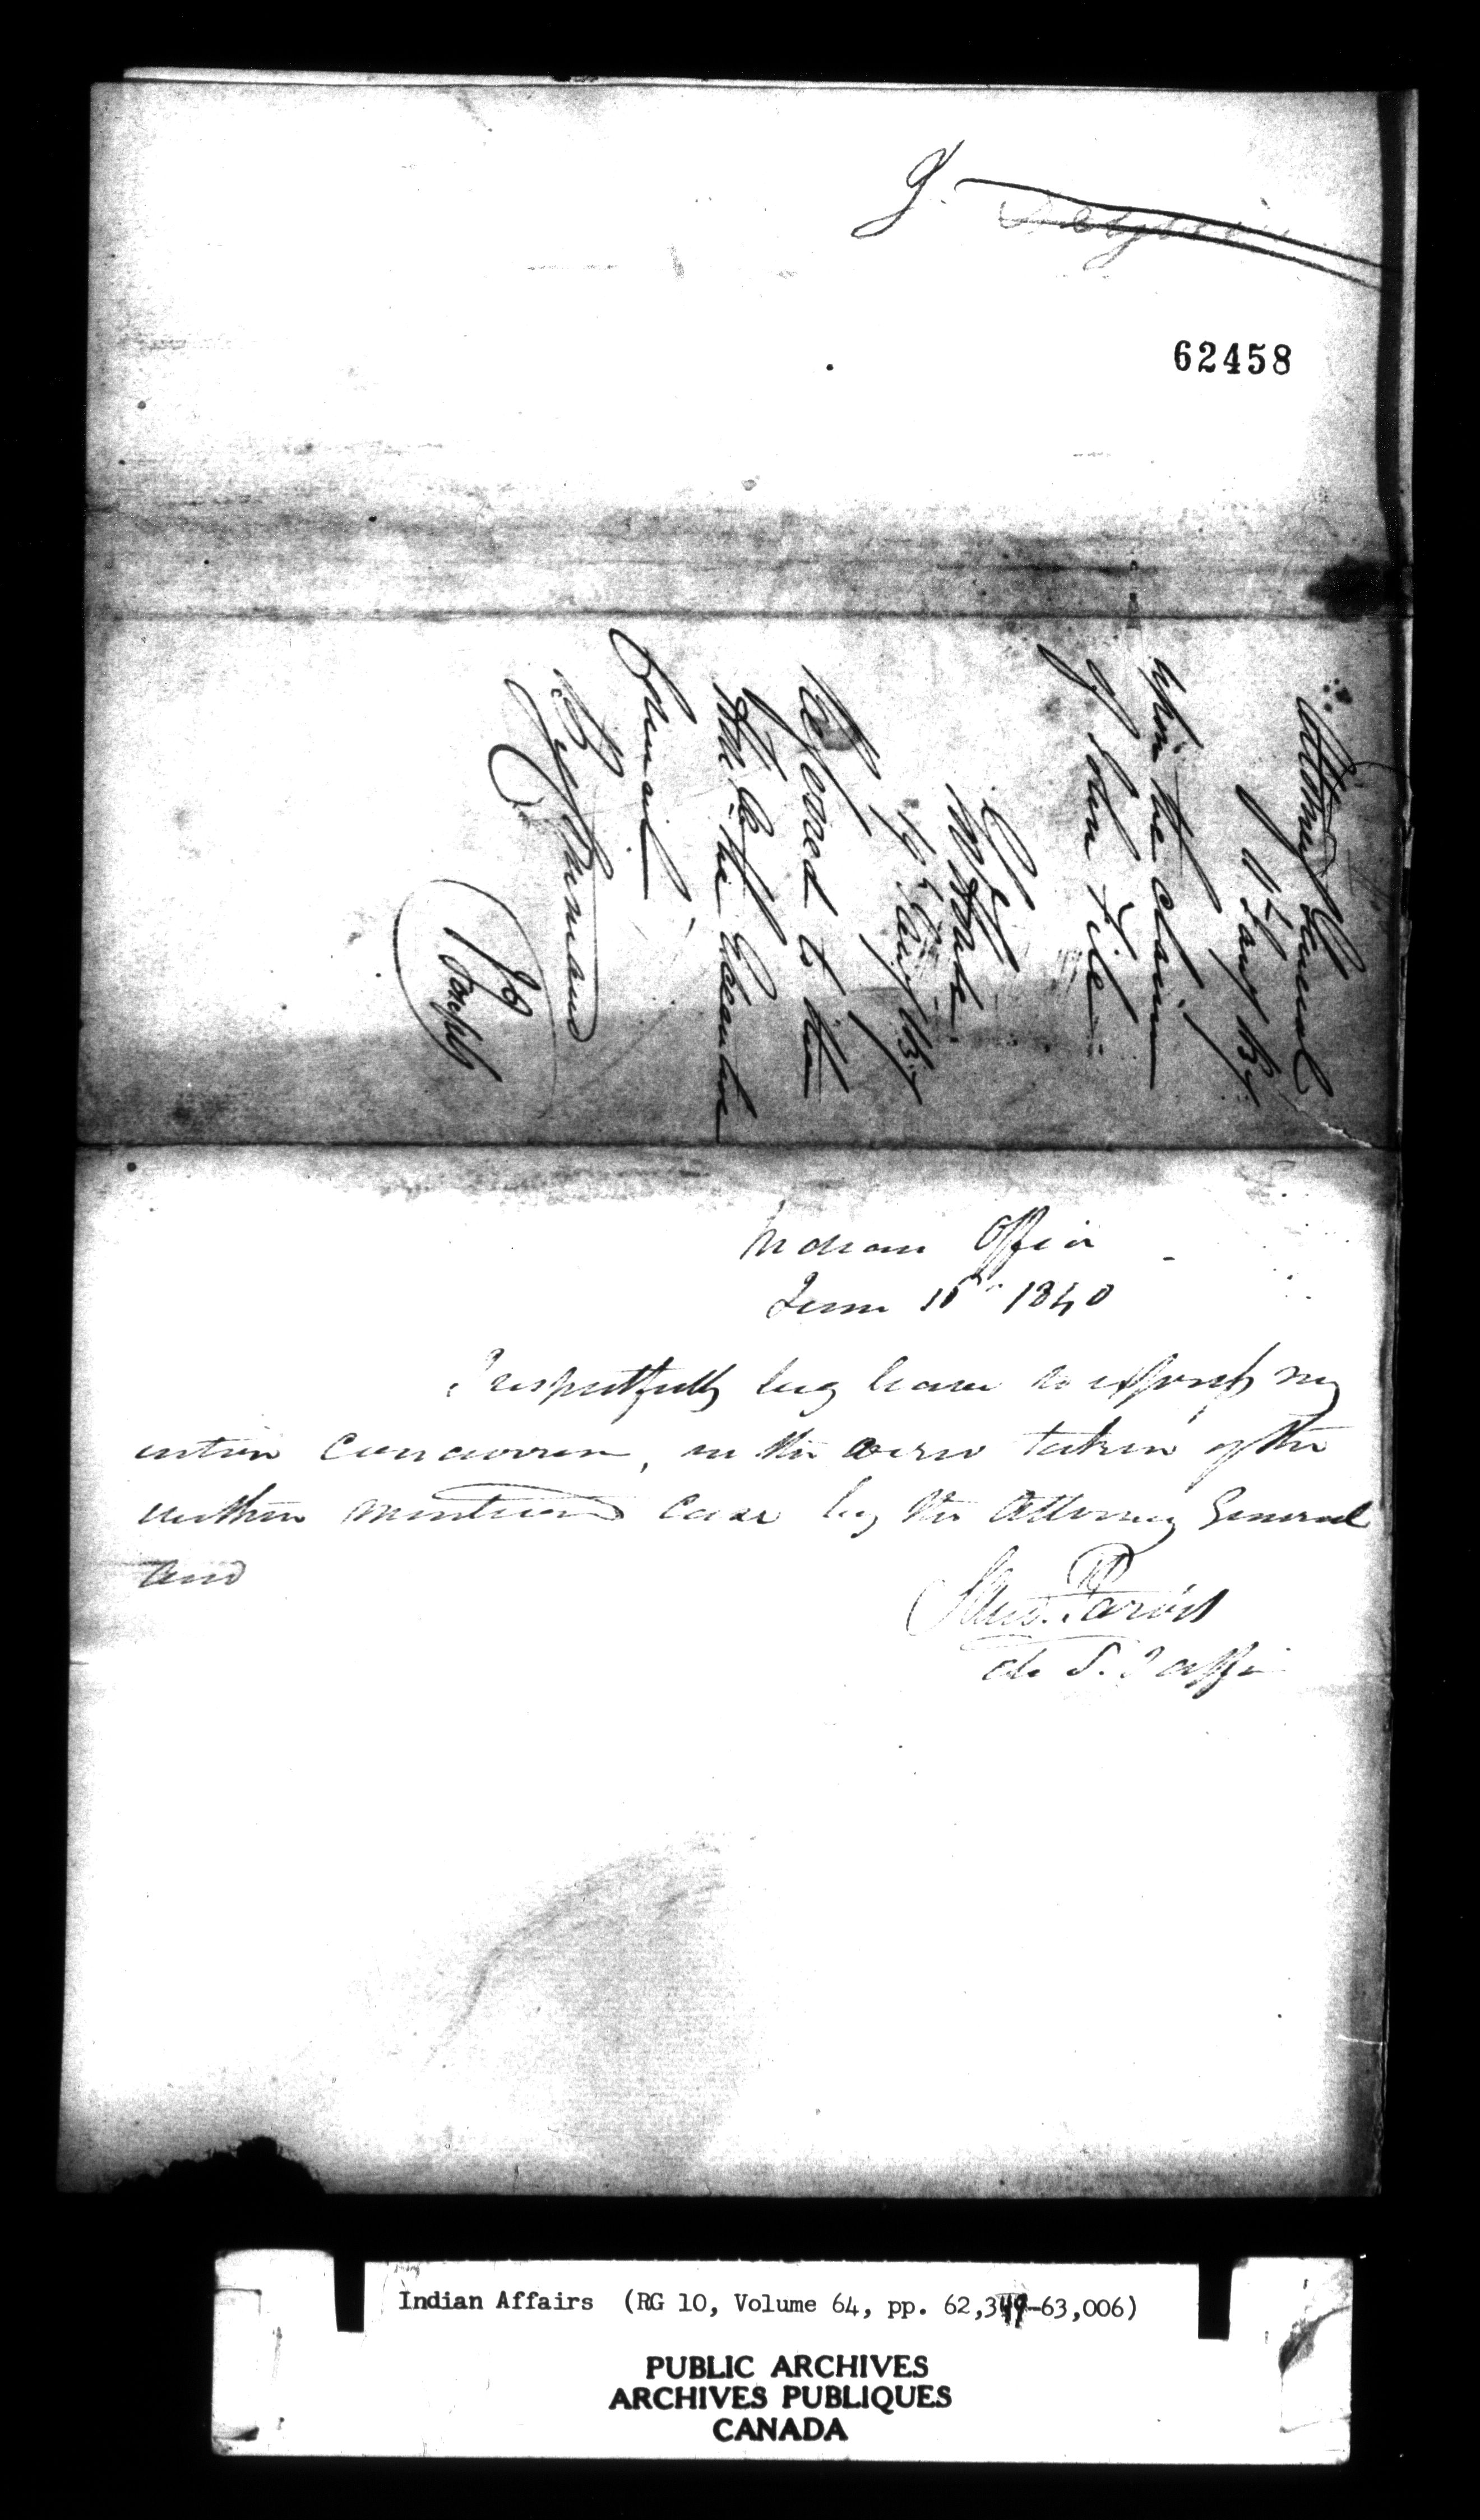 J.
62458
Attorney General
11th Jany 1837
upon the claim
of John File
Govt House
14th Jany 1837
Referred to the
for the
Executive
Council
By Command
J Joseph
Indian Office
June 15th 1840
I respectfully beg leave to express my
entire concurrence, in the view taken of the
within mentioned case by the Attorney General
and
Saml. P. Jarvis
Indian Affairs (RG 10, Volume 64, pp. 62,349-63,006)
PUBLIC ARCHIVES
ARCHIVES PUBLIQUES
CANADA